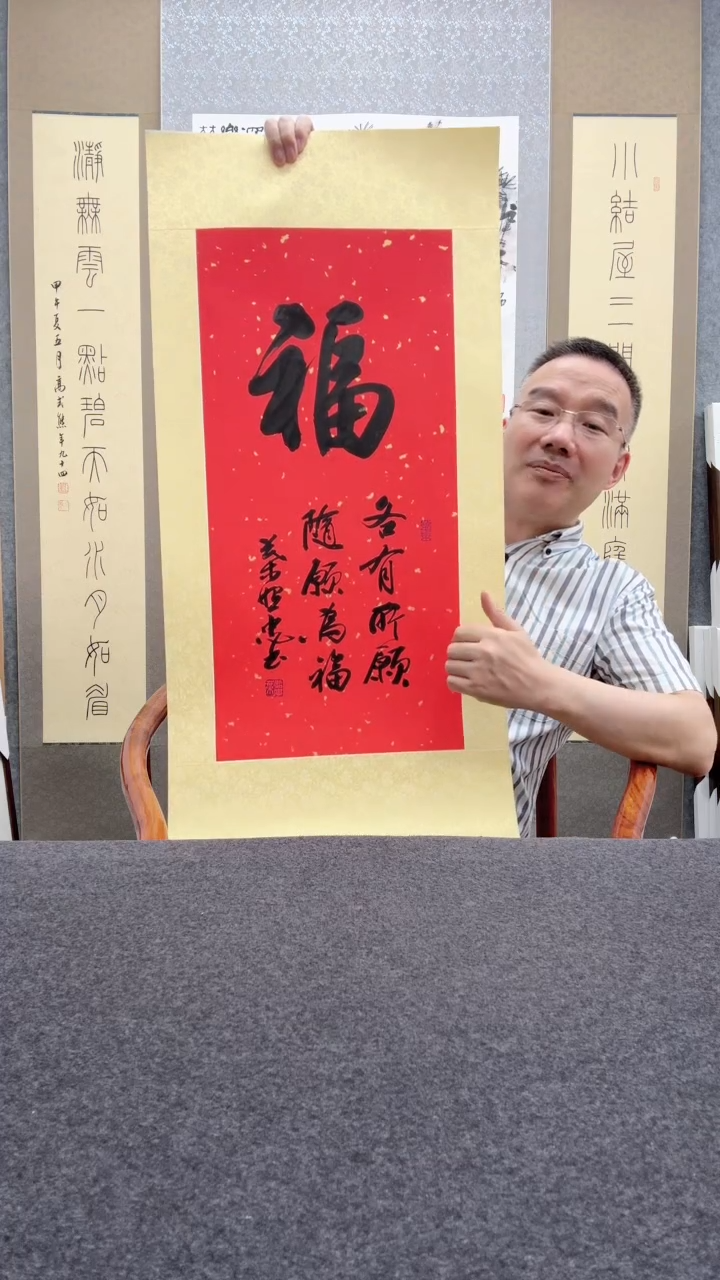 福
各有所願
隨願為福
小結屋三間
滿窗
瀞無雲一點碧天如水月如眉
甲午夏五月高式熊年九十四